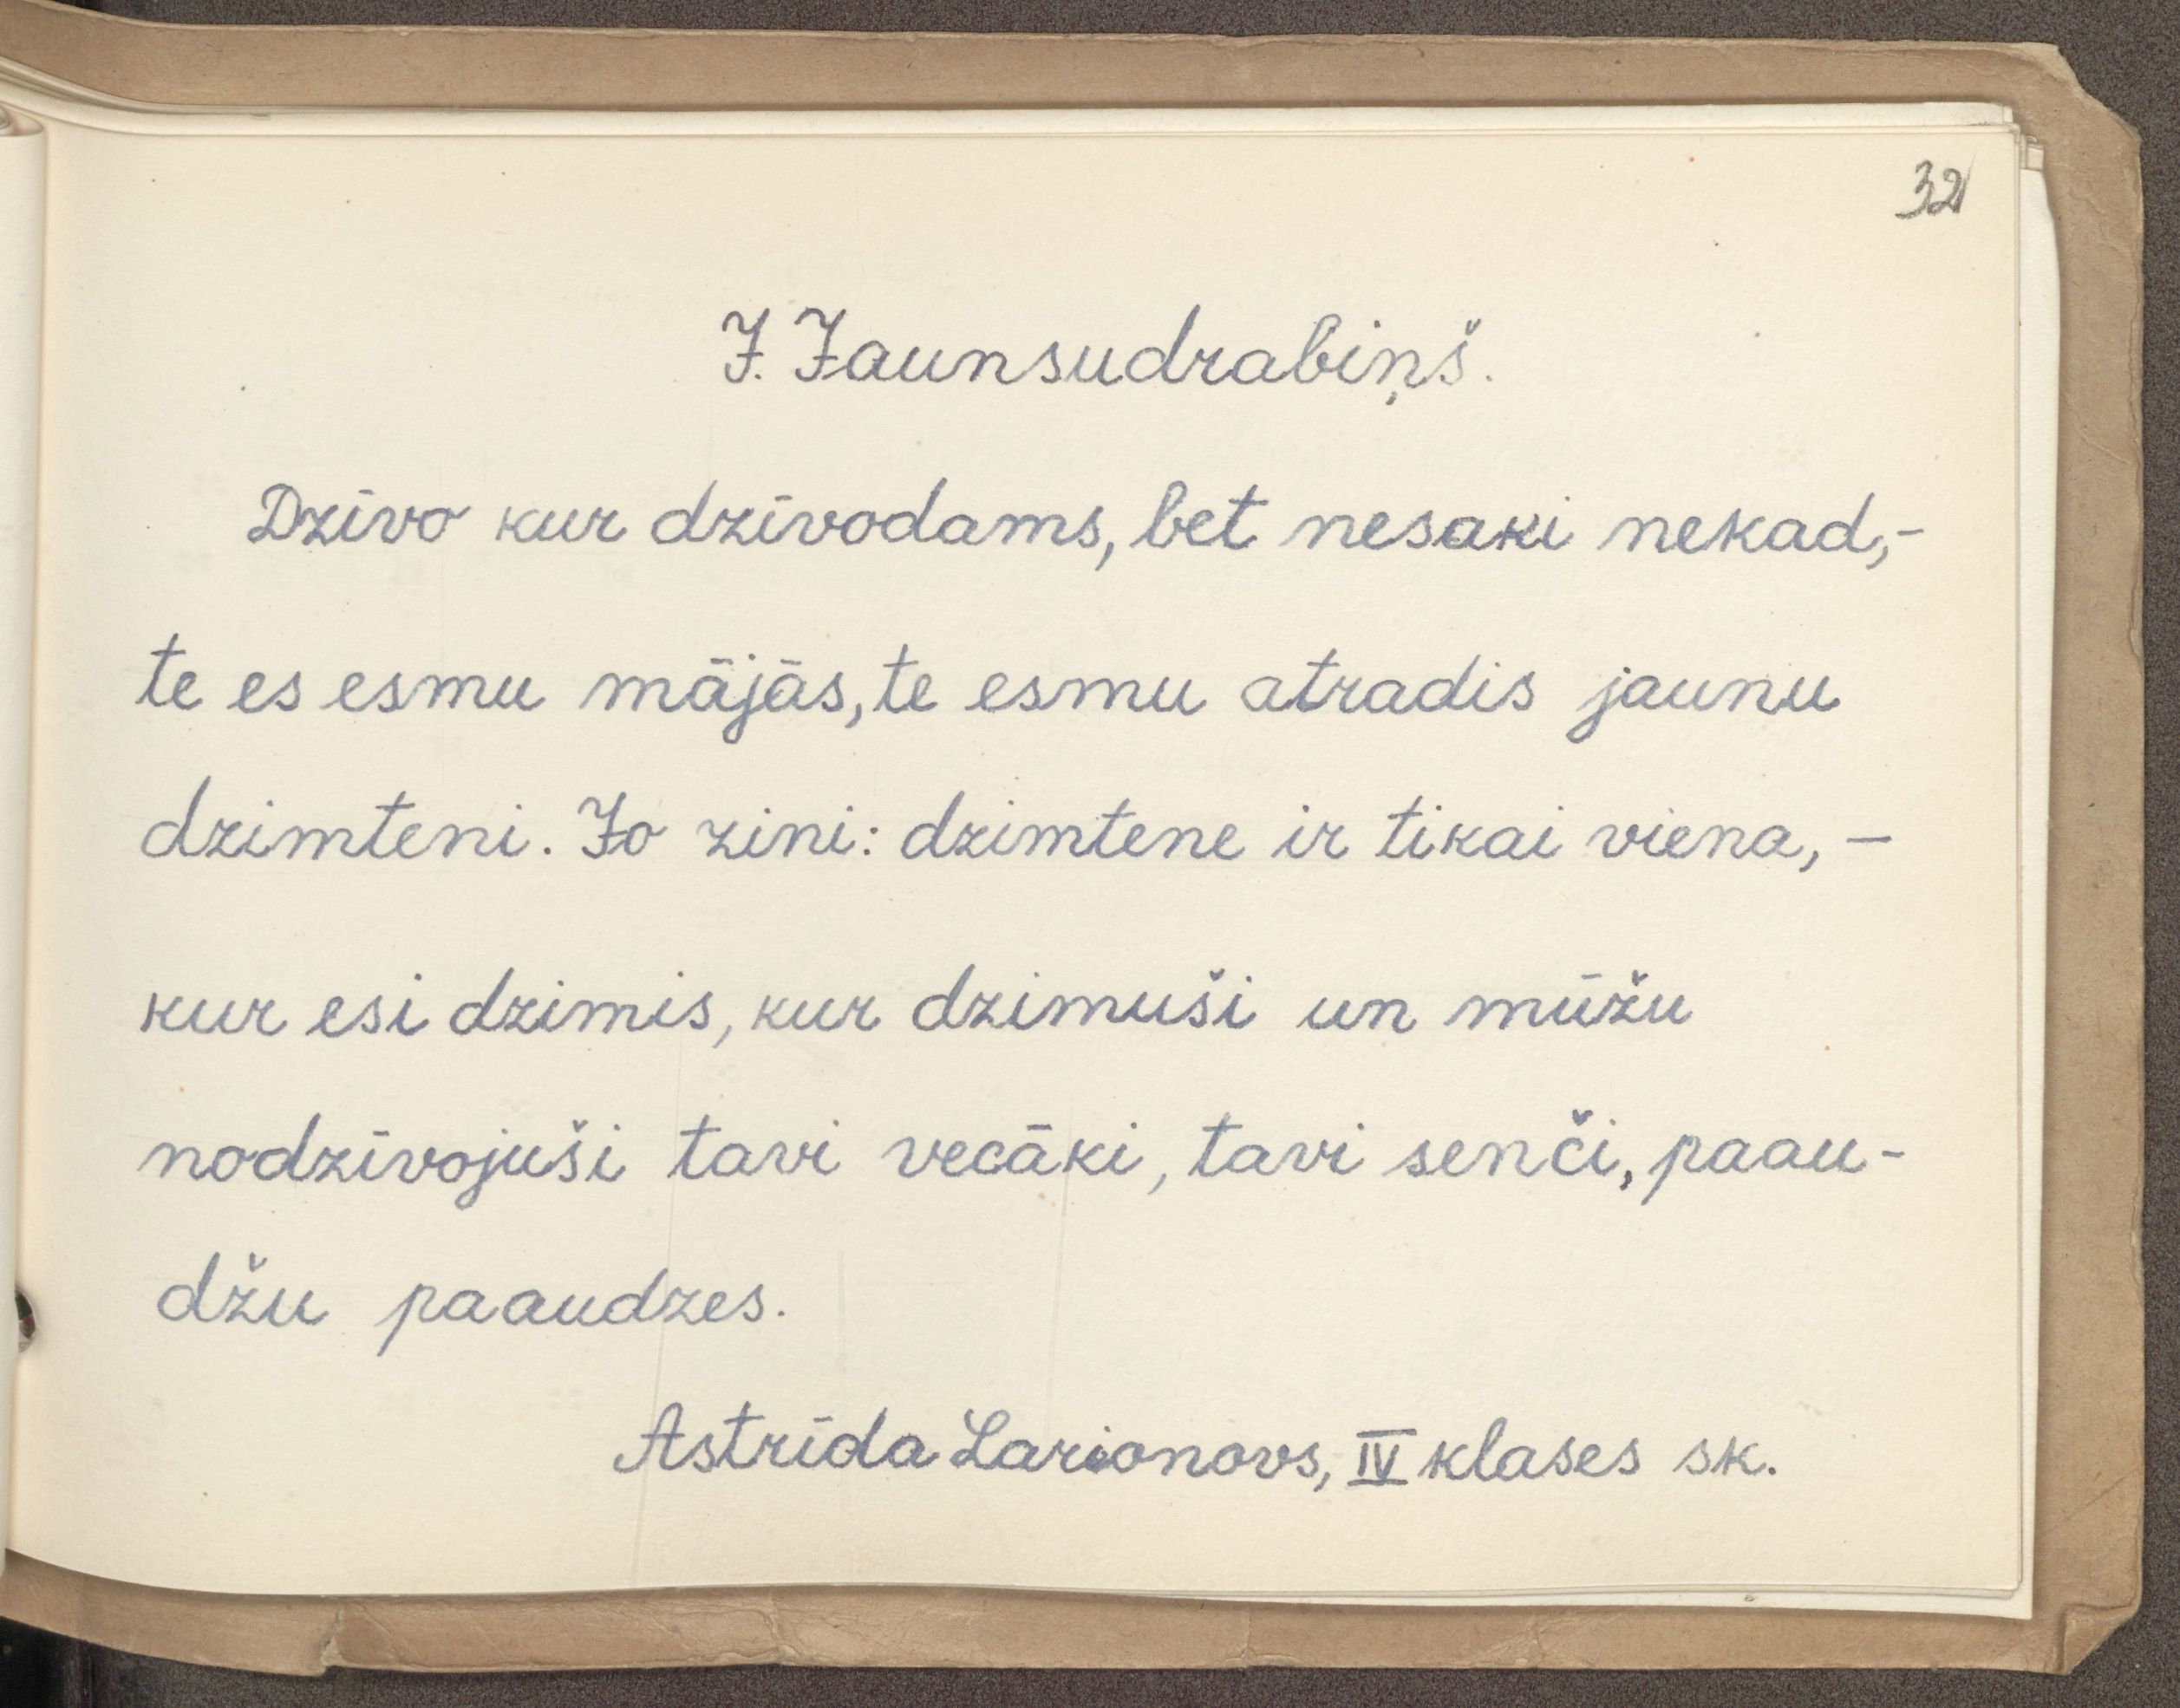 32
J. Jaunsudrabiņš.
Dzīvo kur dzīvodams, bet nesaki nekad,-
te es esmu mājās, te esmu atradis jaunu
dzimteni. Jo zini: dzimtene ir tikai viena, –
kur esi dzimis, kur dzimuši un mūžu
nodzīvojuši tavi vecāki, tavi senči, paau-
džu paaudzes.
Astrīda Larionovs, IV klases sk.